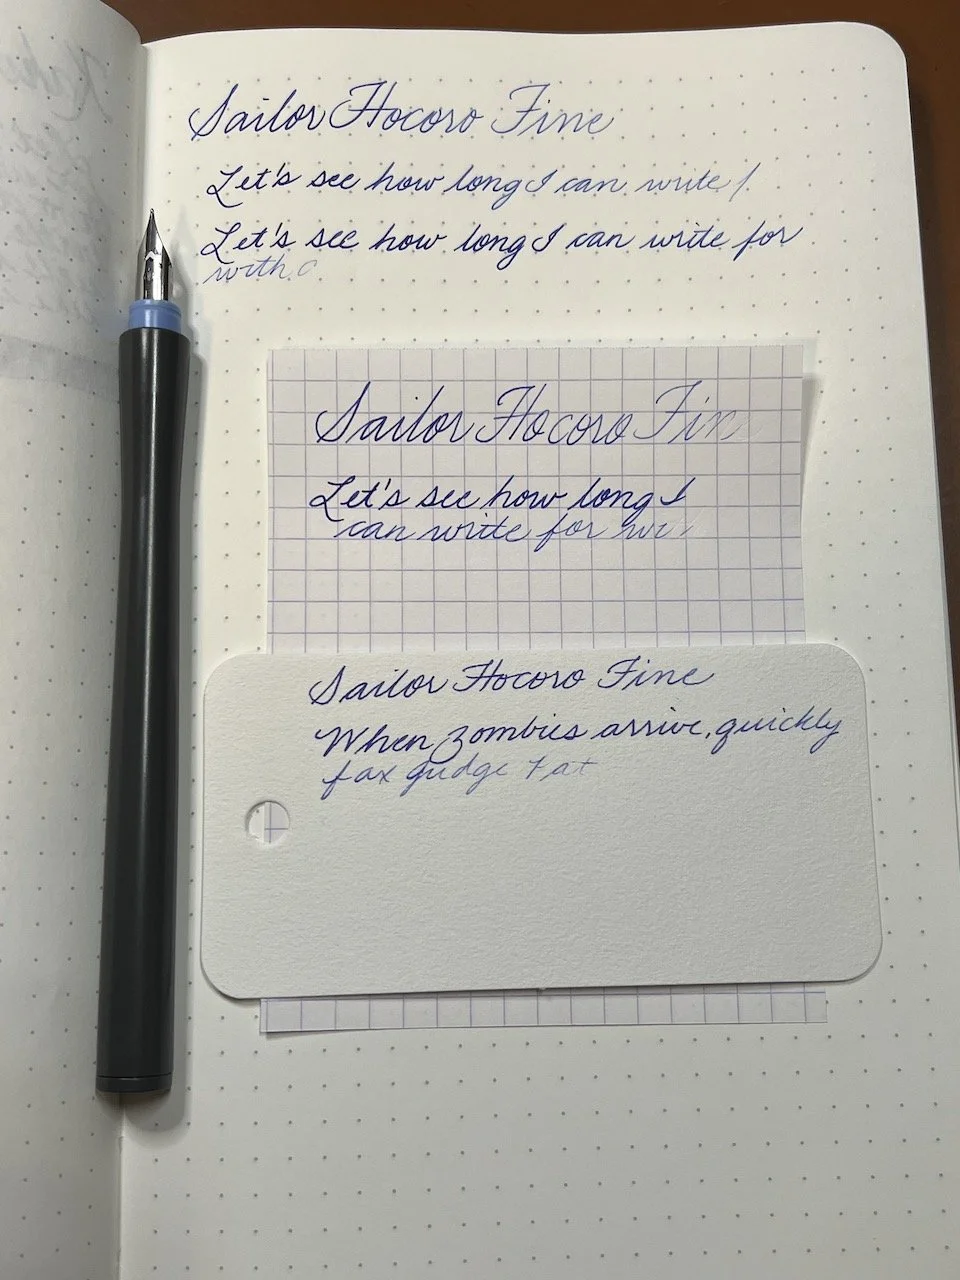 Sailor Hocoro Fine
Let's see how long I can write f
Let's see how long I can write for
with a
Sailor Hocoro Fin
Let's see how long I
can write for wi
Sailor Hocoro Fine
When zombies arrive, quickly
fax gudge Pat